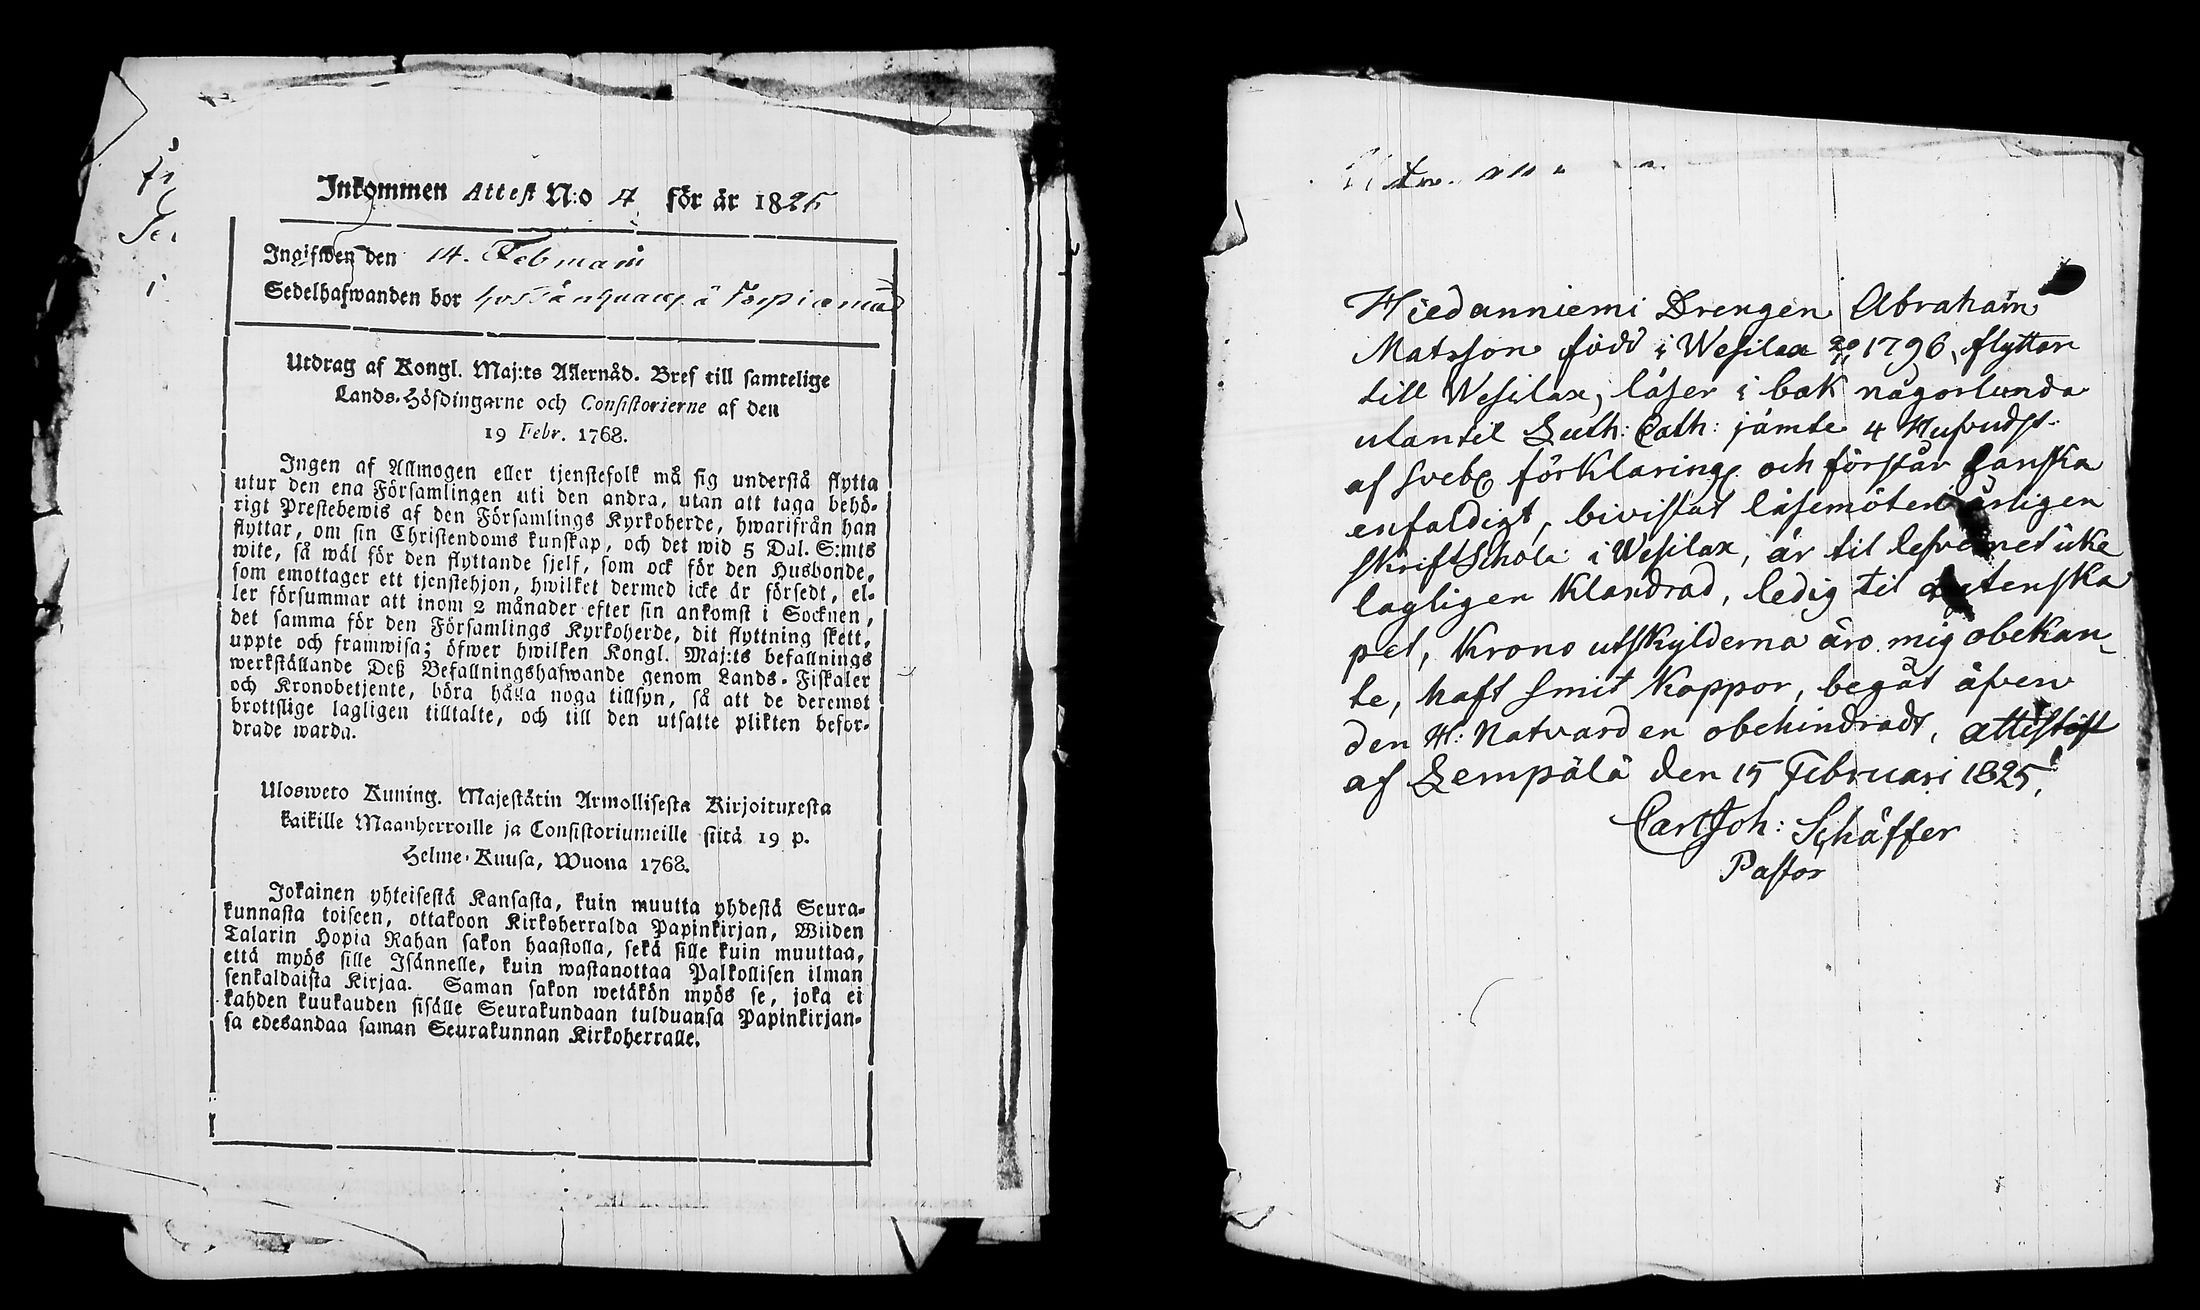 Inkommen Attest N:o 4 för år 1825
Ingifwen den 14. Februarii
Sedelhafwanden bor
Utdrag af Kongl. Maj:ts Allernåd. Bref till samtelige
Lands-Höfdingarne och Consistorierne af den
19 Febr. 1768.
Ingen af Allmogen eller tjenstefolk må sig understå flytta
utur den ena Församlingen uti den andra, utan att taga behö-
rigt Prestebewis af den Församlings Kyrkoherde, hwarifrån han
flyttar, om sin Christendoms kunskap, och det wid 5 Dal. S:mts
wite, så wäl för den flyttande sjelf, som ock för den Husbonde,
som emottager ett tjenstehjon, hwilket dermed icke är försedt, el-
ler försummar att inom 2 månader efter sin ankomst i Socknen,
det samma för den Församlings Kyrkoherde, dit flyttning skett,
uppte och framwisa; öfwer hwilken Kongl. Maj:ts befallnings
werkställande Deß Befallningshafwande genom Lands-Fiskaler
och Kronobetjente, böra hålla noga tillsyn, så att de deremot
brottslige lagligen tilltalte, och till den utsatte plikten befor-
drade warda.
Ulosweto Kuning. Majestätin Armollisesta Kirjoituxesta
kaikille Maanherroille ja Consistoriumeille siitä 19 p.
Helme-Kuusa, Wuona 1768.
Jokainen yhteisestä Kansasta, kuin muutta yhdestä Seura-
kunnasta toiseen, ottakoon Kirkoherralda Papinkirjan, Wiiden
Talarin Hopia Rahan sakon haastolla, sekä sille kuin muuttaa,
että myös sille Isännelle, kuin wastanottaa Palkollisen ilman
senkaldaista Kirjaa. Saman sakon wetäkön myös se, joka ei
kahden kuukauden sisälle Seurakundaan tulduansa Papinkirjan-
sa edesandaa saman Seurakunnan Kirkoherralle.
Hiedanniemi Drengen Abraham
Matsson född i Wesilax 20/11 1796, flyttar
till Wesilax, läser i bok någorlunda
utantil Luth: Cath: jämte 4 Hufvudst.
af Sveb förklaring och förstår ganska
enfaldigt, bivistat läsemöten årligen
Skriftschola i Wesilax, är til lefvernet icke
lagligen klandrad, ledig til ägtenska
pet, Krono utskylderna äro mig obekan-
te, haft Smit Koppor, begåt äfven
den H: Natvarden obehindradt, attest
af Lempälä den 15 Februari 1825,
Carl Joh: Schäffer
Pastor